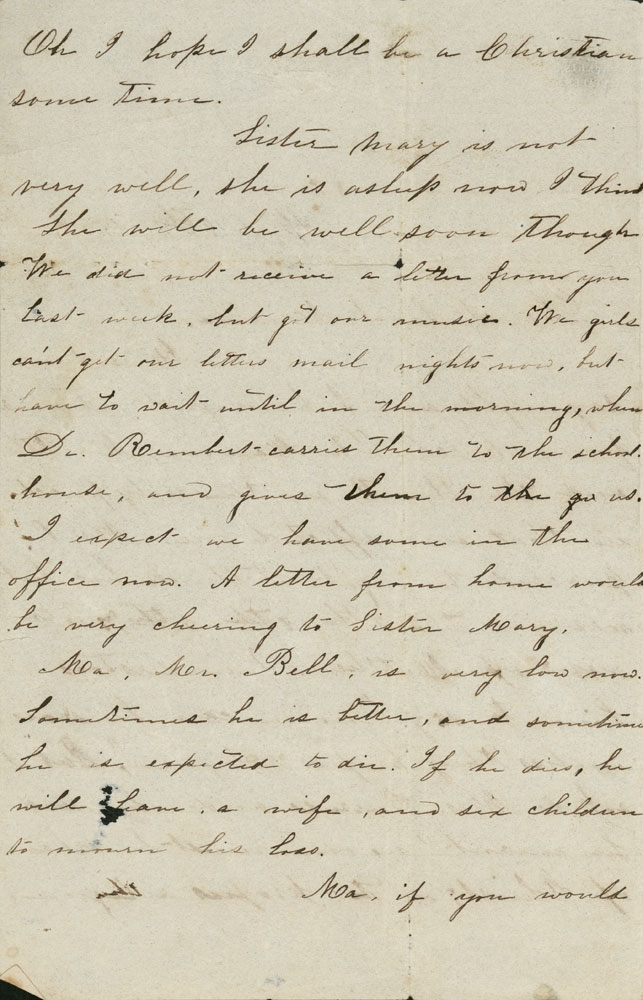 Oh I hope I shall be a Christian
some time.
Sister Mary is not
very well, she is asleep now I think
she will be well soon though
We did not receive a letter from you
last week, but got our music. We girls
can't get our letters mail nights now, but
have to wait until in the morning, when
Dr. Rembert carries them to the school
house, and gives them to the gi us.
I expect we have some in the
office now. A letter from home would
be very cheering to Sister Mary.
Ma, Mr. Bell, is very low now.
Sometimes he is better, and sometimes
he is expected to die. If he dies, he
will leave, a wife, and six children
to mourn his loss.
Ma, if you would